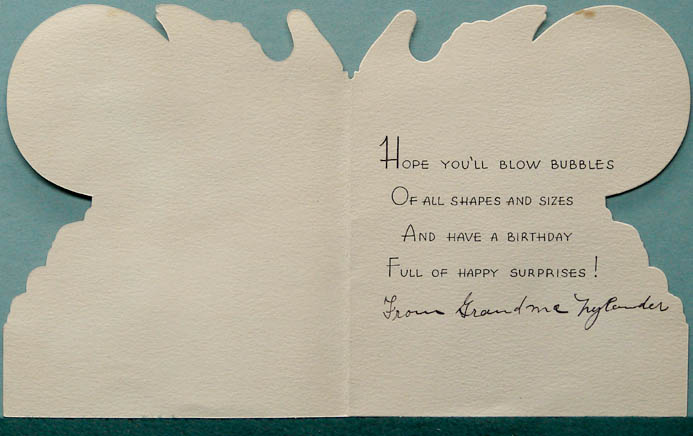 Hope you'll blow bubbles
Of all shapes and sizes
And have a birthday
Full of happy surprises!
From Grandma Nylander